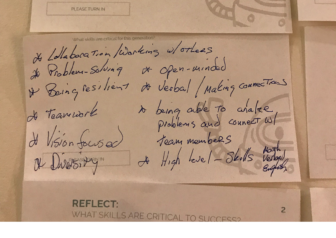 PLEASE TURN IN
* Collaboration/Working w/others
* Problem-Solving
* Being resilient
* Teamwork
* Vision focused
* Diversity
* open-minded
* Verbal / Making connections
* being able to
problems and connect w/
team members
* High level - Skills
Verbal
REFLECT:
2
WHAT SKILLS ARE CRITICAL TO SUCCESS?